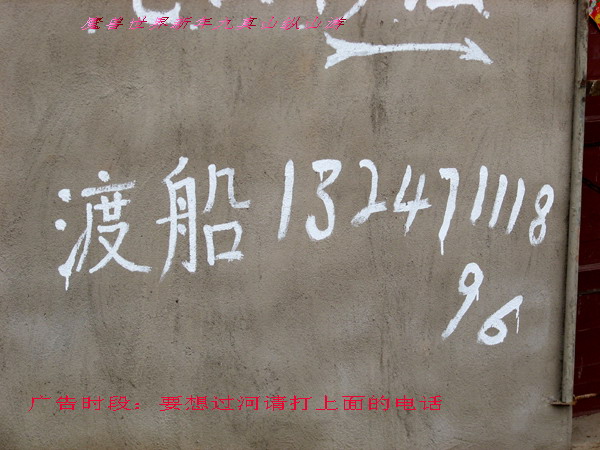 渡船 132471118
96
广告时段：要想过河请打上面的电话